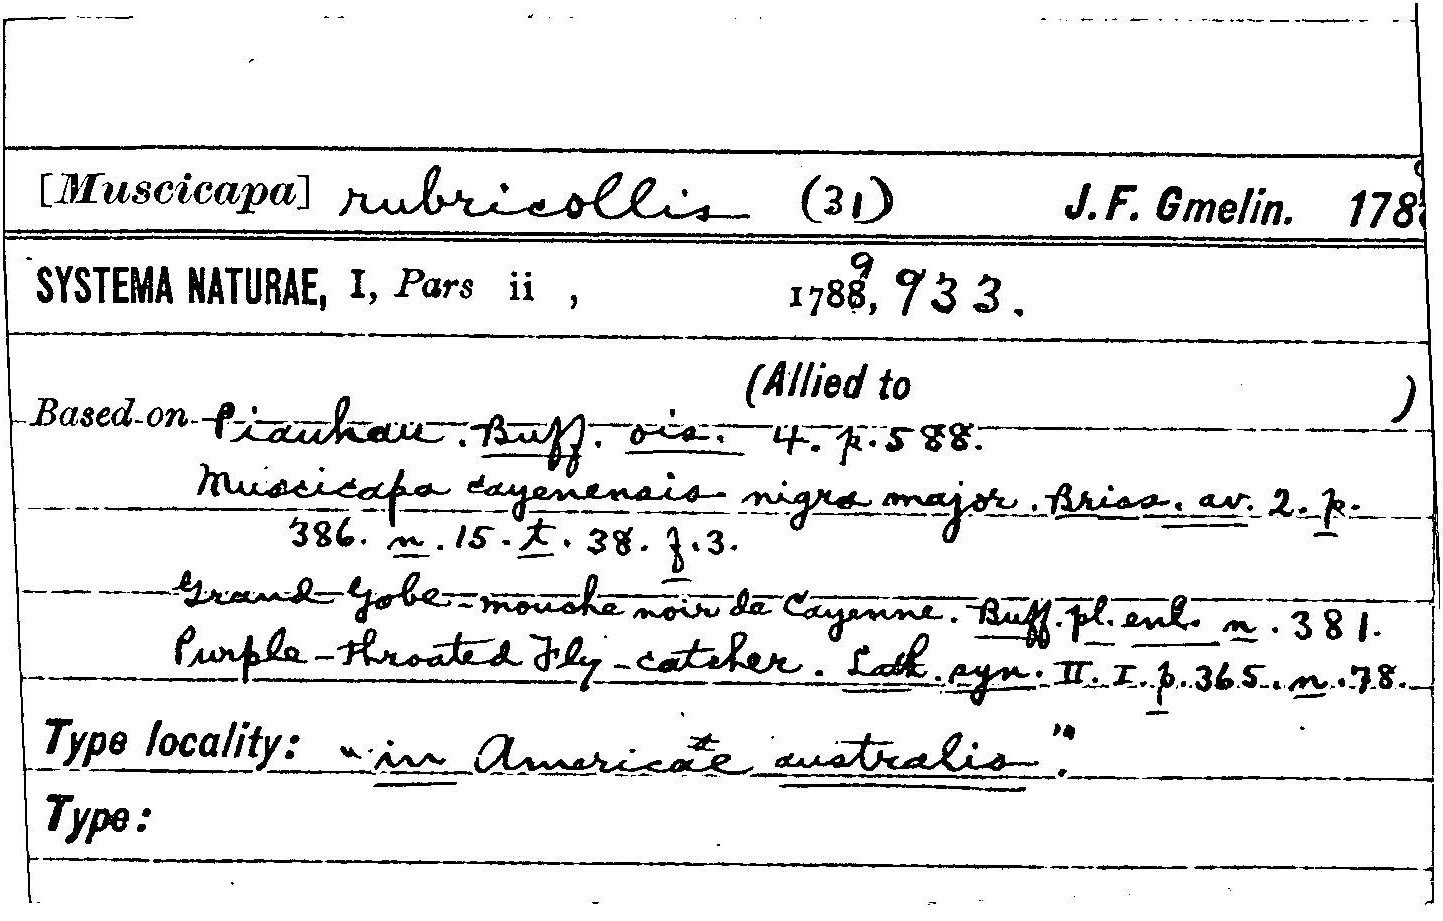 [Muscicapa] rubricollis (31) J. F. Gmelin. 178
SYSTEMA NATURAE, I, Pars ii , 1788, 9 933.
(Allied to )
Based on Piauhau. Buff. ois. 4. p. 588.
Muscicapa cayenensis nigra major. Briss. av. 2. p.
386. n. 15. t. 38. f. 3.
Grand Gobe-mouche noir de Cayenne. Buff. pl. enl. n. 381.
Purple-throated Fly-catcher. Lath. syn. II. I. p. 365. n. 78.
Type locality: "in Americae australis".
Type: